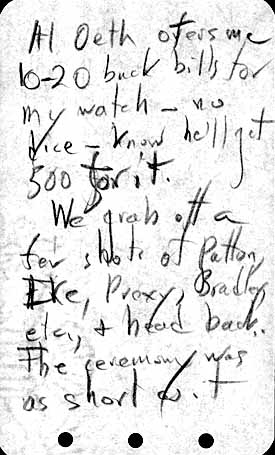 Al Oeth offers me
10-20 buck bills for
my watch - no
dice - know he'll get
500 for it.
We grab off a
few shots of Patton,
Ike, Prexy, Bradley
etc, + head back.
The ceremony was
as short as. T